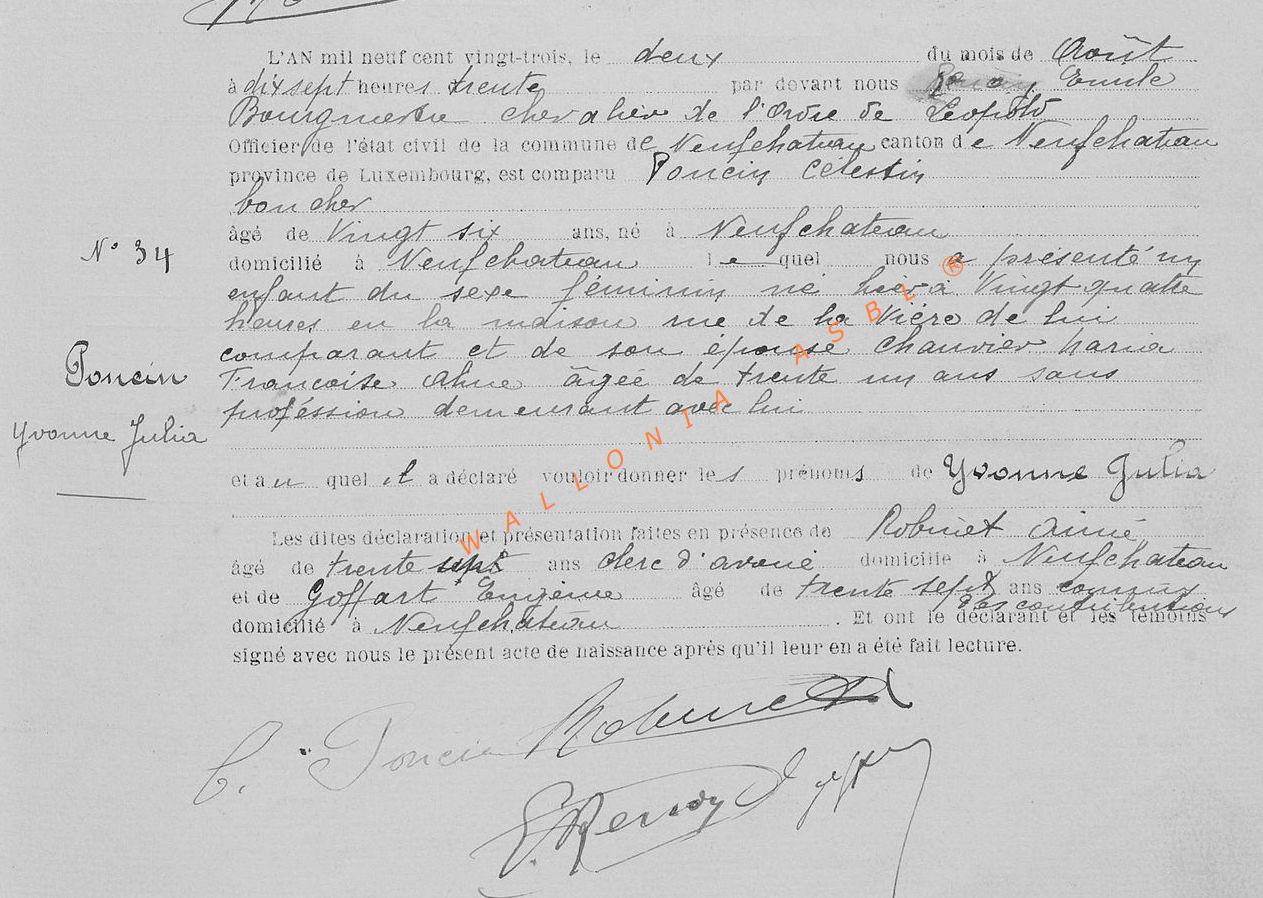 L'AN mil neuf cent vingt-trois, le deux du mois de Août
à dix sept heures trente par devant nous Emile
Bourgmestre chevalier de l'Ordre de Léopold
Officier de l'état civil de la commune de Neufchateau canton de Neufchateau
province de Luxembourg, est comparu Poncin Célestin
boucher
âgé de Vingt six ans, né à Neufchateau
N° 34
domicilié à Neufchateau lequel nous a présenté un
enfant du sexe féminin né hier à Vingt quatre
heures en la maison rue de la de lui
Poncin
comparant et de son épouse Chauvier Maria
Francoise âgée de trente un ans sans
profession demeurant avec lui
Yvonne Julia
et auquel il a déclaré vouloir donner les prénoms de Yvonne Julia
Les dites déclaration et présentation faites en présence de Robinet Aimé
âgé de trente sept ans clerc d'avoué domicilié à Neufchateau
et de Goffart Eugène âgé de trente sept ans commis
des contributions
domicilié à Neufchateau. Et ont le déclarant et les témoins
signé avec nous le présent acte de naissance après qu'il leur en a été fait lecture.
C. Poncin Robinet
WALLONIA ASBL ®